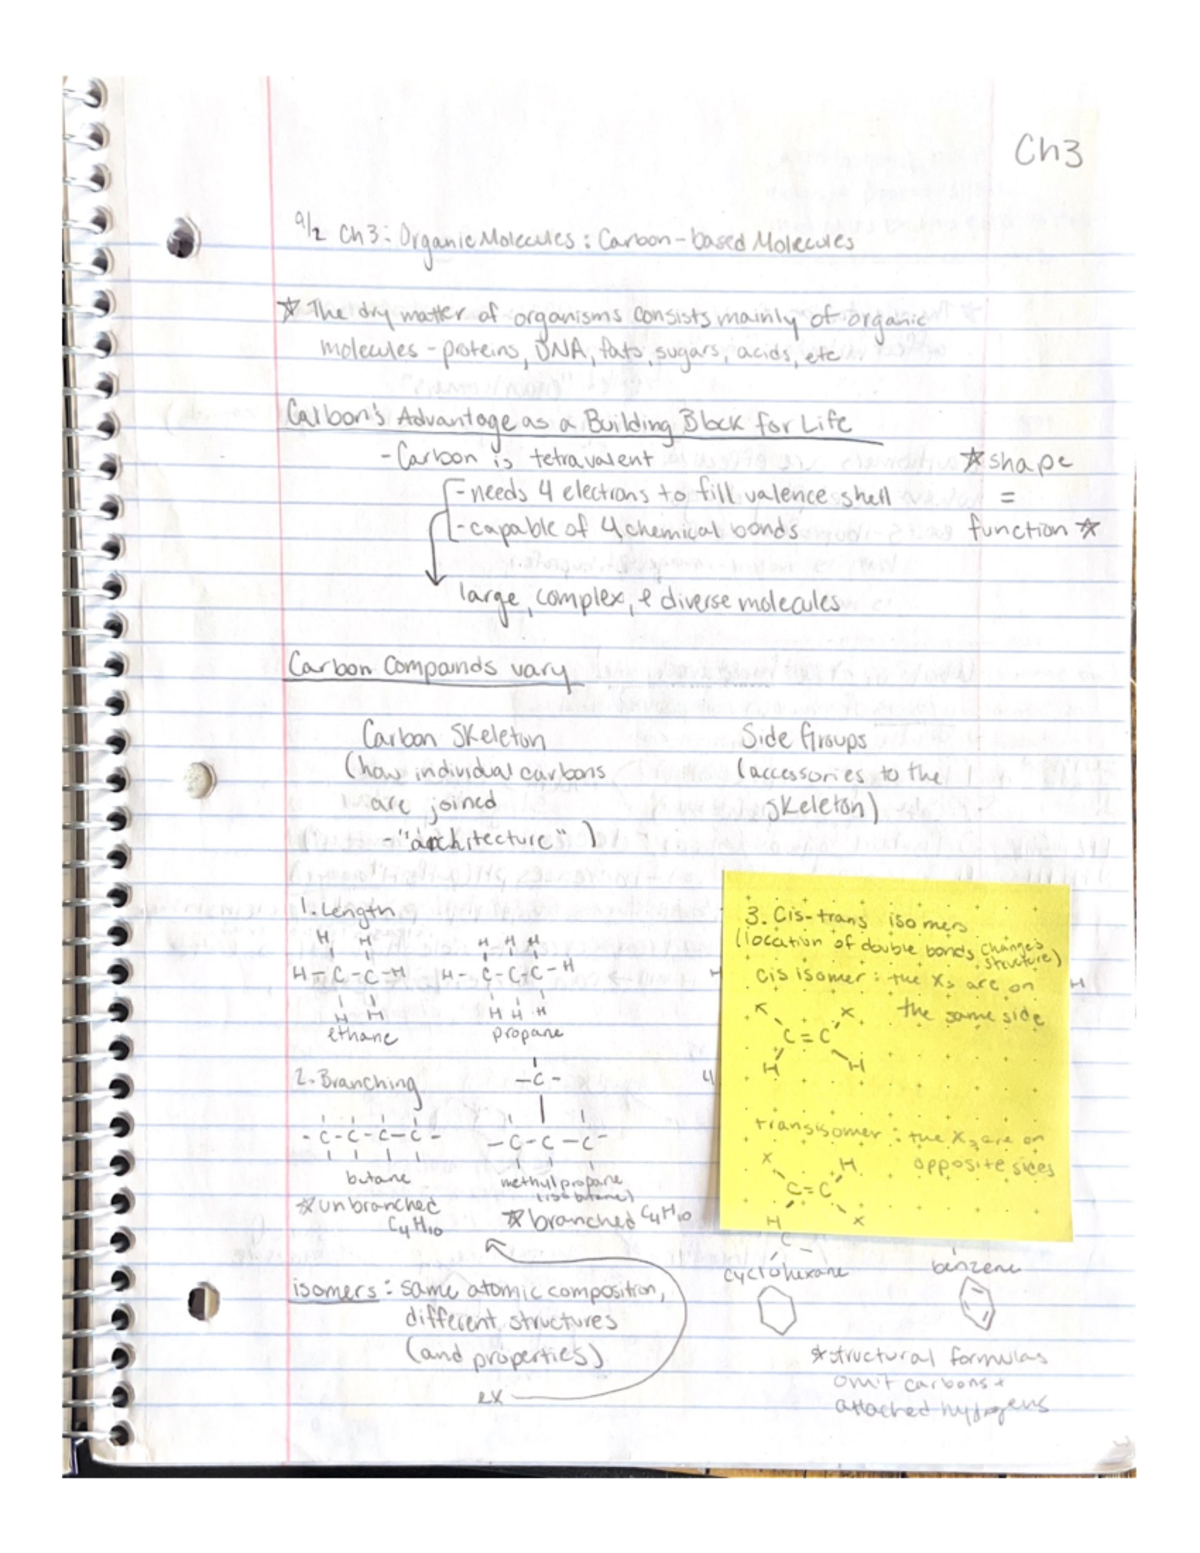 Ch3
9/2 Ch3: Organic Molecules: Carbon-based Molecules
☆ The dry matter of organisms consists mainly of organic
molecules - proteins, DNA, fats, sugars, acids, etc
Carbon's Advantage as a Building Block for Life
- Carbon is tetravalent
- needs 4 electrons to fill valence shell
- capable of 4 chemical bonds
large, complex, & diverse molecules
☆ shape
=
function ☆
Carbon Compounds vary
Carbon Skeleton
(how individual carbons
are joined
- "architecture")
Side Groups
(accessories to the
skeleton)
1. Length
H H
H-C-C-H
H H
ethane
H H H
H-C-C-C-H
H H H
propane
2. Branching
-C-C-C-C-
butane
☆ unbranched
C4H10
-C-
-C-C-C-
methyl propane
(isobutane)
☆ branched C4H10
isomers: same atomic composition,
different structures
(and properties)
ex
3. Cis-trans isomers
(location of double bonds changes
structure)
cis isomer: the Xs are on
the same side
X X
C=C
H H
trans isomer: the Xs are on
opposite sides
X H
C=C
H X
H
H
4
C
cyclohexane
benzene
☆ structural formulas
omit carbons +
attached hydrogens